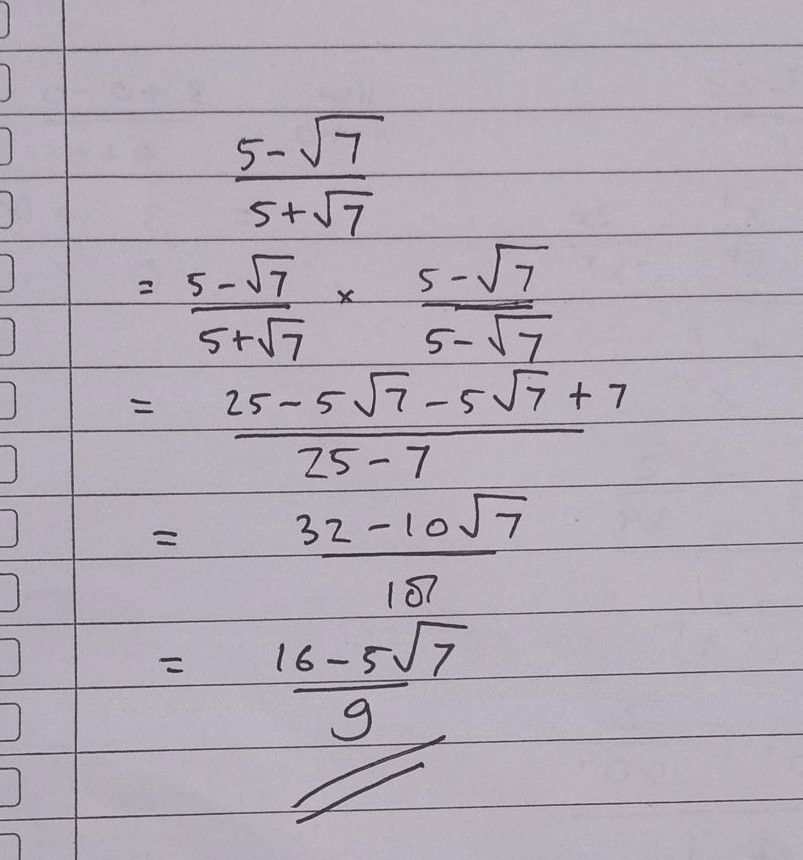 5-√7
5+√7
= 5-√7 × 5-√7
5+√7 5-√7
= 25-5√7-5√7+7
25-7
= 32-10√7
18
= 16-5√7
9